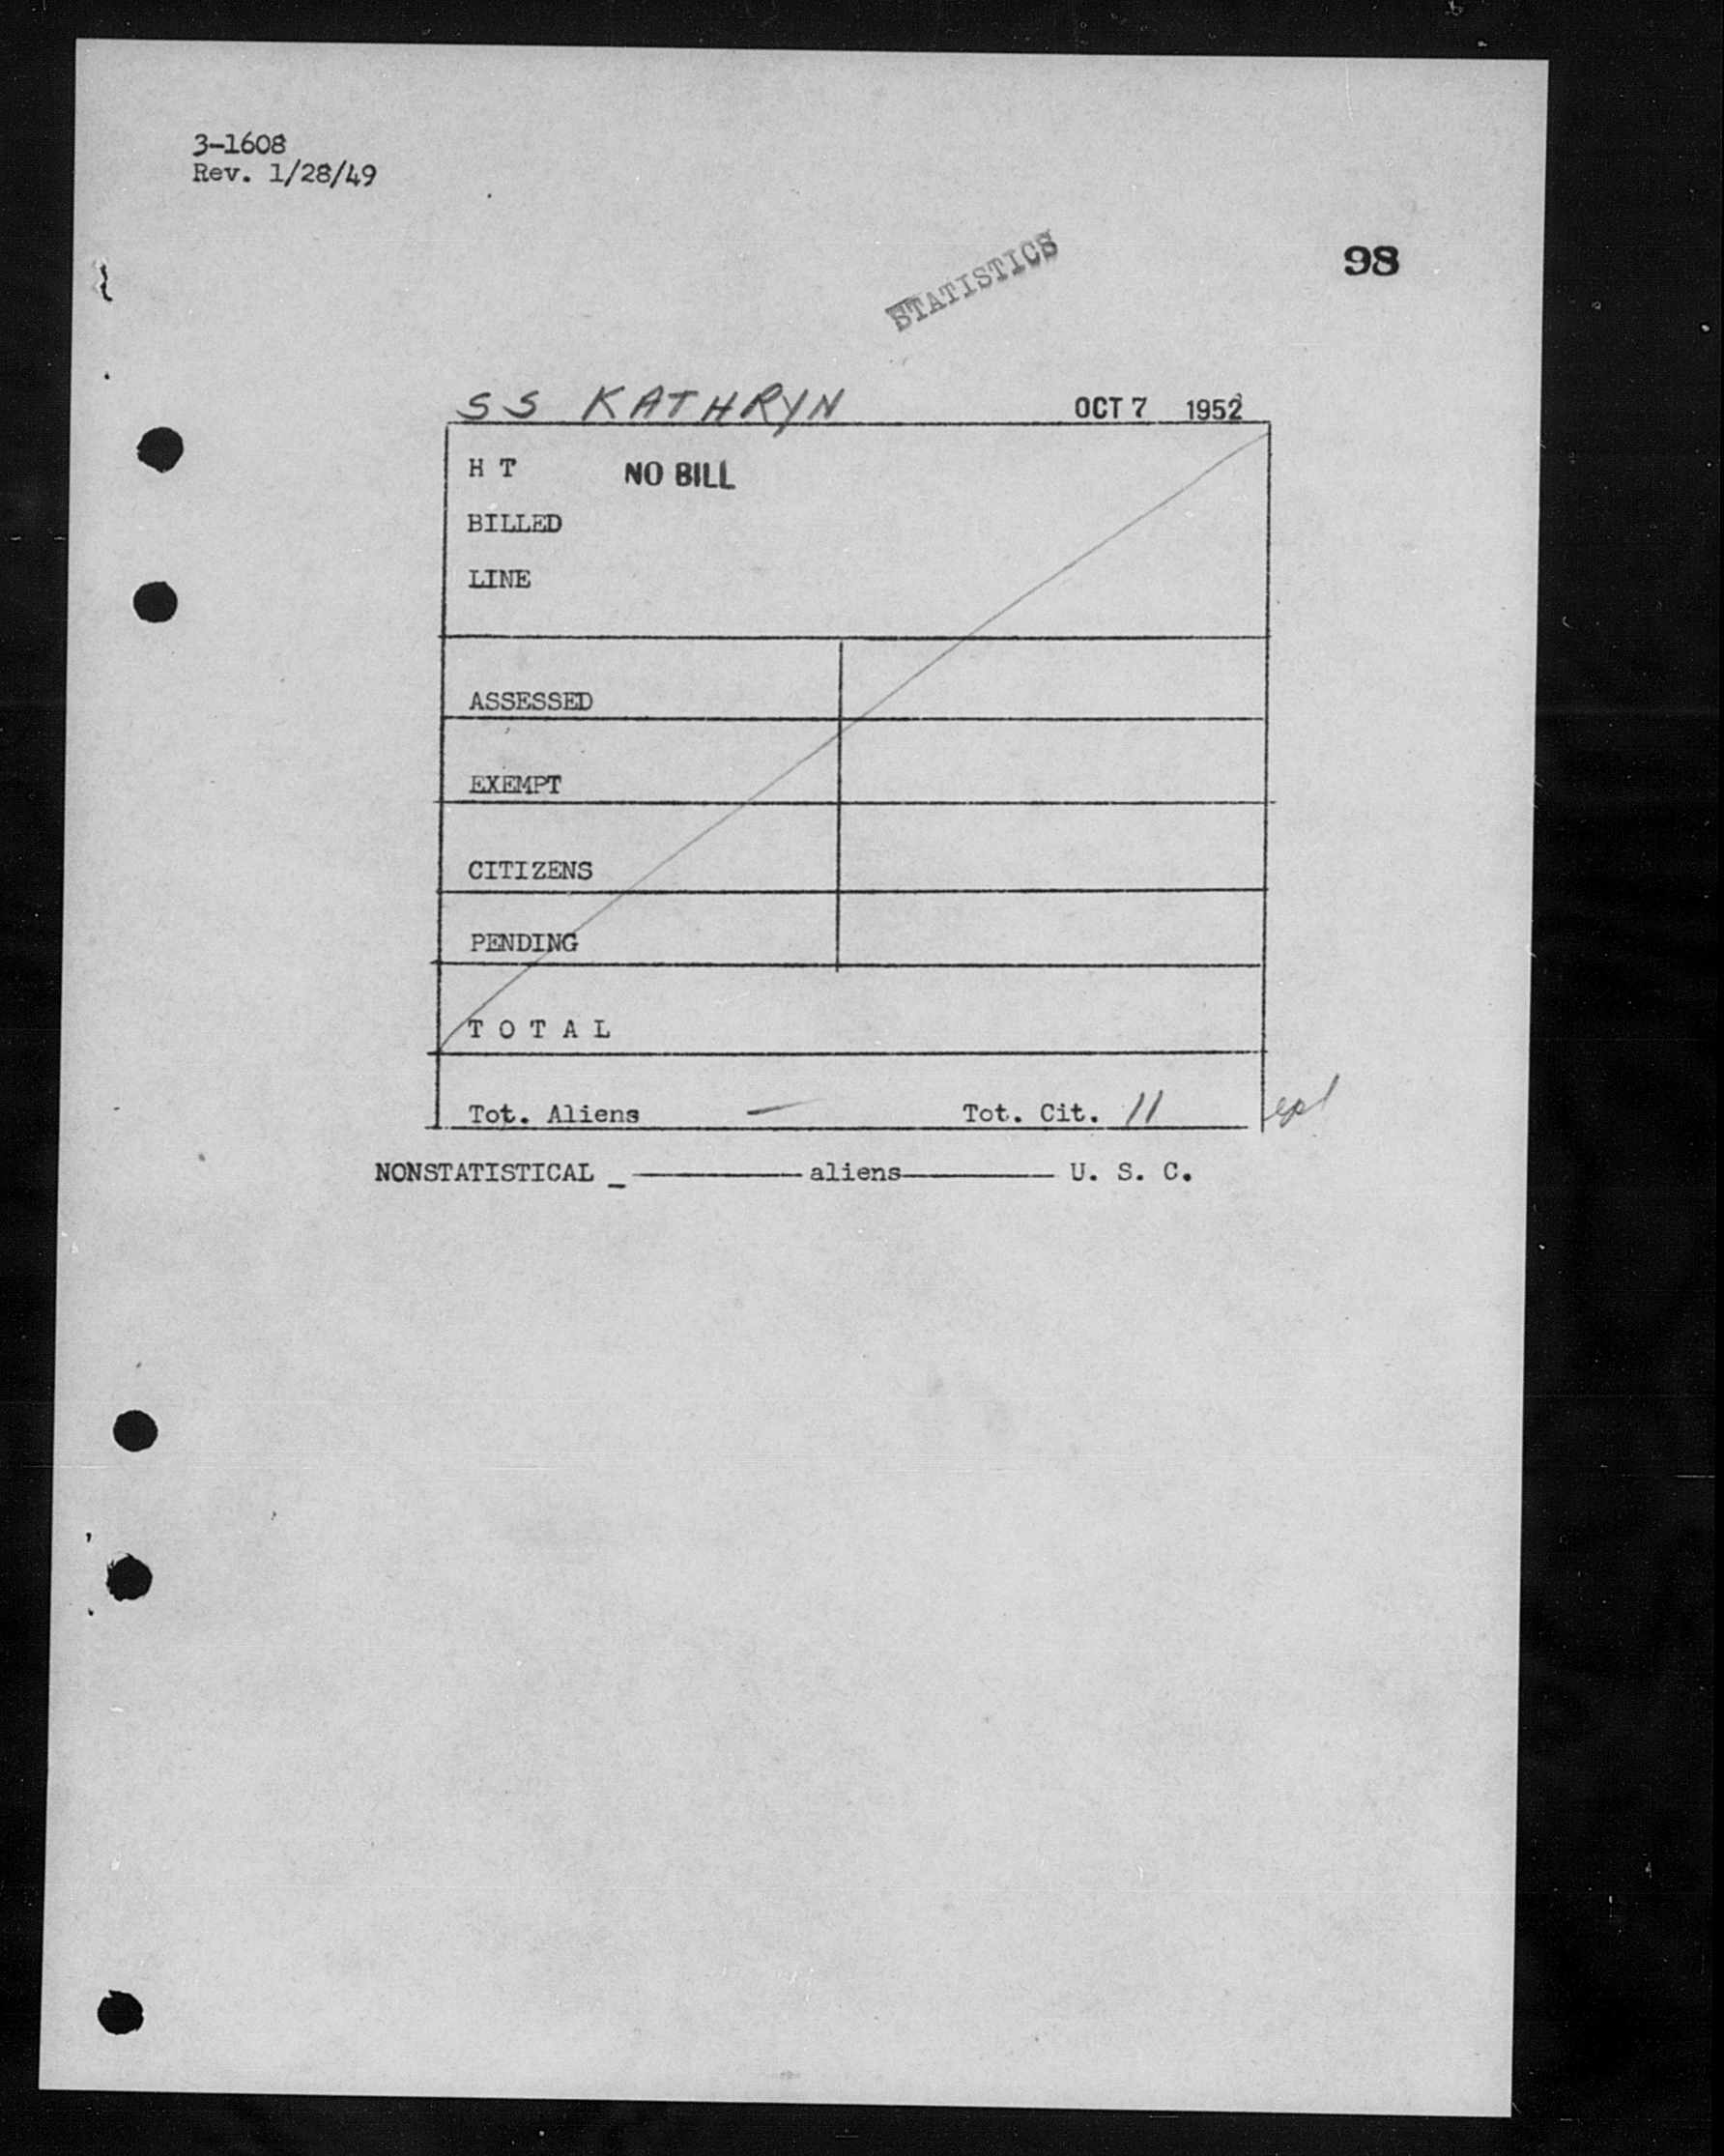 3-1608
Rev. 1/28/49
STATISTICS
98
SS KATHRYN OCT 7 1952
H T NO BILL
BILLED
LINE
ASSESSED
EXEMPT
CITIZENS
PENDING
T O T A L
Tot. Aliens — Tot. Cit. 11
NONSTATISTICAL _ aliens U. S. C.